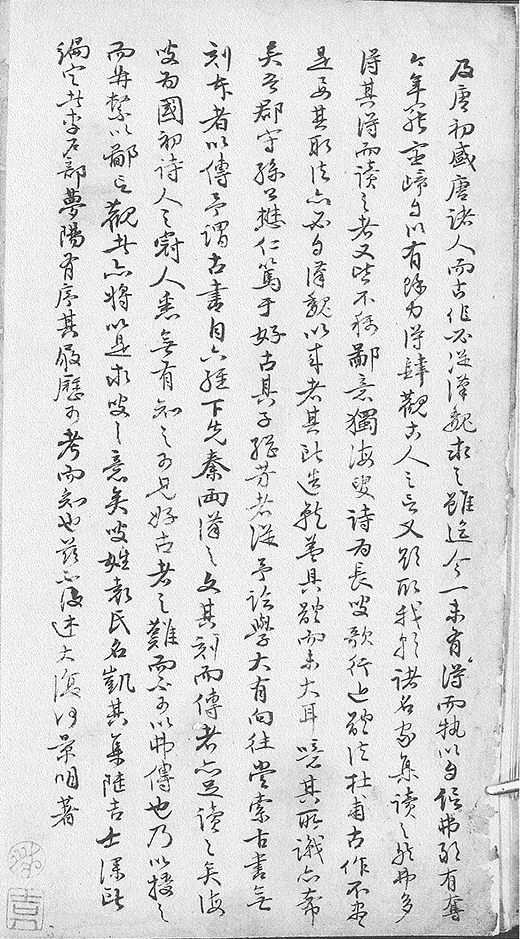 及唐初盛唐諸人而古作必從漢魏求之雖迄今一未有得而執以自信弗敢有奪
今年罷歸自以有餘力得肆觀古人之言又取我朝諸名家集讀之然弗多
得其得而讀之者又皆不稱鄙意獨海叟詩為長叟歌行近體法杜甫古作不盡
是要其取法亦必自漢魏以來者其所造就蓋具體而未大耳噫其所識亦希
矣吾郡守孫公懋仁篤于好古其子繼芳者從予論學大有向往嘗索古書無
刻本者以傳予謂古書自六經下先秦兩漢之文其刻而傳者亦足讀之矣海
叟為國初詩人之冠人悉無有知之可見好古者之難而不可以弗傳也乃以授之
而冉繫以鄙言觀者亦將以是求叟之意矣叟姓袁氏名凱其集陸吉士深所
編定者李戶部夢陽有序其履歷可考而知也茲不復述大復何景明著